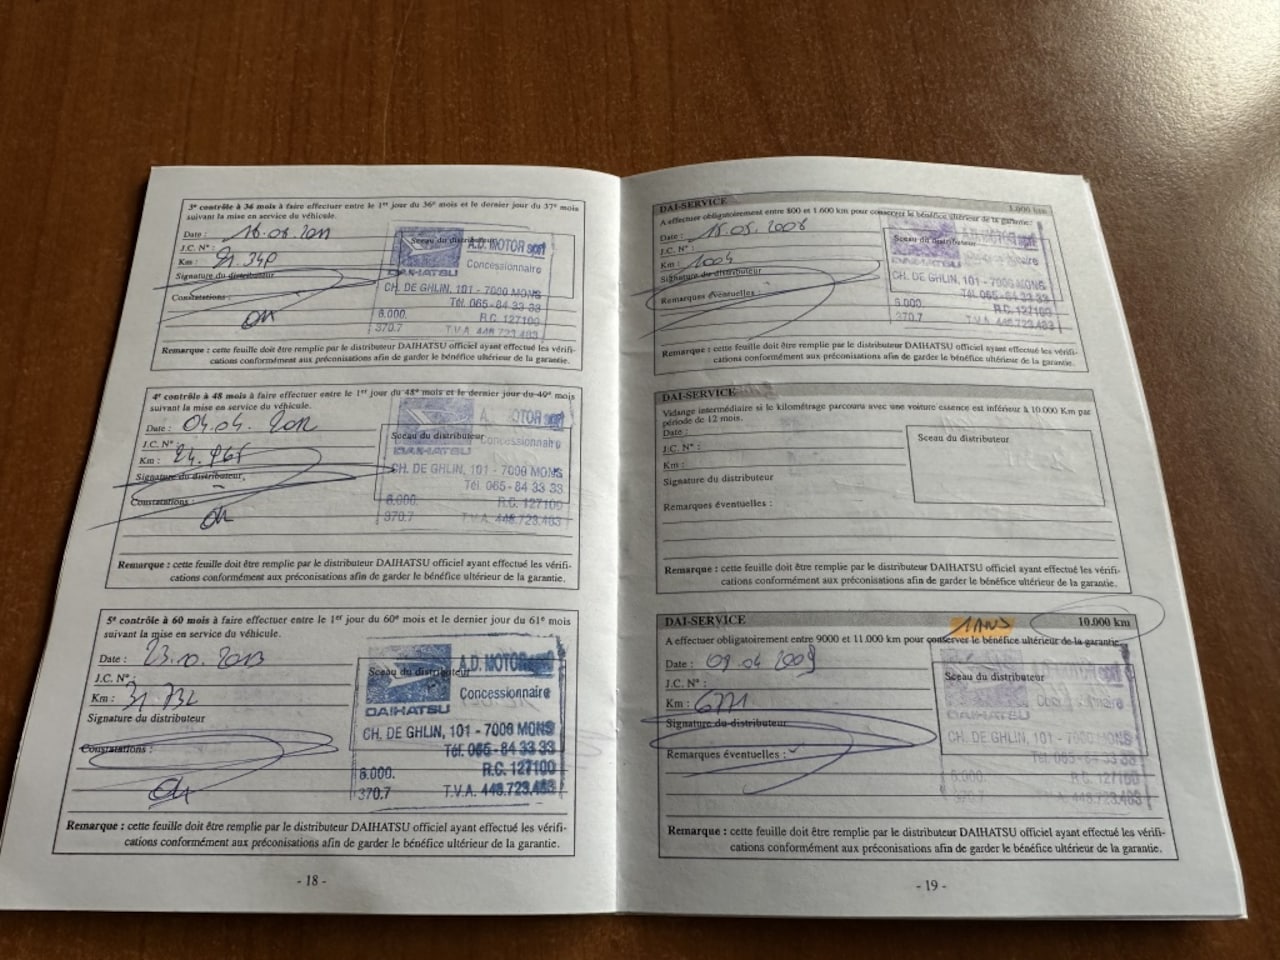 3e contrôle à 36 mois à faire effectuer entre le 1er jour du 36e mois et le dernier jour du 37e mois
suivant la mise en service du véhicule.
Date : 16.08.2011
J.C. N° :
Km :
Signature du distributeur
Constatations :
OK
Sceau du distributeur
A.D. MOTOR sprl
Concessionnaire
DAIHATSU
CH. DE GHLIN, 101 - 7000 MONS
Tél. 065 - 84 33 33
6.000. R.C. 127100
370.7 T.V.A. 448.723.483
Remarque : cette feuille doit être remplie par le distributeur DAIHATSU officiel ayant effectué les vérifi-
cations conformément aux préconisations afin de garder le bénéfice ultérieur de la garantie.
4e contrôle à 48 mois à faire effectuer entre le 1er jour du 48e mois et le dernier jour du 49e mois
suivant la mise en service du véhicule.
Date : 04.04.2012
J.C. N° :
Km :
Signature du distributeur
Constatations :
OK
Sceau du distributeur
A.D. MOTOR sprl
Concessionnaire
DAIHATSU
CH. DE GHLIN, 101 - 7000 MONS
Tél. 065 - 84 33 33
6.000. R.C. 127100
370.7 T.V.A. 448.723.483
Remarque : cette feuille doit être remplie par le distributeur DAIHATSU officiel ayant effectué les vérifi-
cations conformément aux préconisations afin de garder le bénéfice ultérieur de la garantie.
5e contrôle à 60 mois à faire effectuer entre le 1er jour du 60e mois et le dernier jour du 61e mois
suivant la mise en service du véhicule.
Date : 23.10.2013
J.C. N° :
Km : 31.732
Signature du distributeur
Constatations :
OK
Sceau du distributeur
A.D. MOTOR sprl
Concessionnaire
DAIHATSU
CH. DE GHLIN, 101 - 7000 MONS
Tél. 065 - 84 33 33
6.000. R.C. 127100
370.7 T.V.A. 448.723.483
Remarque : cette feuille doit être remplie par le distributeur DAIHATSU officiel ayant effectué les vérifi-
cations conformément aux préconisations afin de garder le bénéfice ultérieur de la garantie.
- 18 -
DAI-SERVICE 1.000 km
A effectuer obligatoirement entre 800 et 1.600 km pour conserver le bénéfice ultérieur de la garantie.
Date : 15.05.2008
J.C. N° :
Km : 1004
Signature du distributeur
Remarques éventuelles :
Sceau du distributeur
CH. DE GHLIN, 101 - 7000 MONS
Tél. 065 - 84 33 33
6.000. R.C. 127100
370.7 T.V.A. 448.723.483
Remarque : cette feuille doit être remplie par le distributeur DAIHATSU officiel ayant effectué les vérifi-
cations conformément aux préconisations afin de garder le bénéfice ultérieur de la garantie.
DAI-SERVICE
Vidange intermédiaire si le kilométrage parcouru avec une voiture essence est inférieur à 10.000 Km par
période de 12 mois.
Date :
J.C. N° :
Km :
Signature du distributeur
Remarques éventuelles :
Sceau du distributeur
Remarque : cette feuille doit être remplie par le distributeur DAIHATSU officiel ayant effectué les vérifi-
cations conformément aux préconisations afin de garder le bénéfice ultérieur de la garantie.
DAI-SERVICE 1 ANS 10.000 km
A effectuer obligatoirement entre 9000 et 11.000 km pour conserver le bénéfice ultérieur de la garantie.
Date : 09.04.2009
J.C. N° :
Km : 6771
Signature du distributeur
Remarques éventuelles :
Sceau du distributeur
DAIHATSU
CH. DE GHLIN, 101 - 7000 MONS
Tél. 065 - 84 33 33
6.000. R.C. 127100
370.7 T.V.A. 448.723.483
Remarque : cette feuille doit être remplie par le distributeur DAIHATSU officiel ayant effectué les vérifi-
cations conformément aux préconisations afin de garder le bénéfice ultérieur de la garantie.
- 19 -